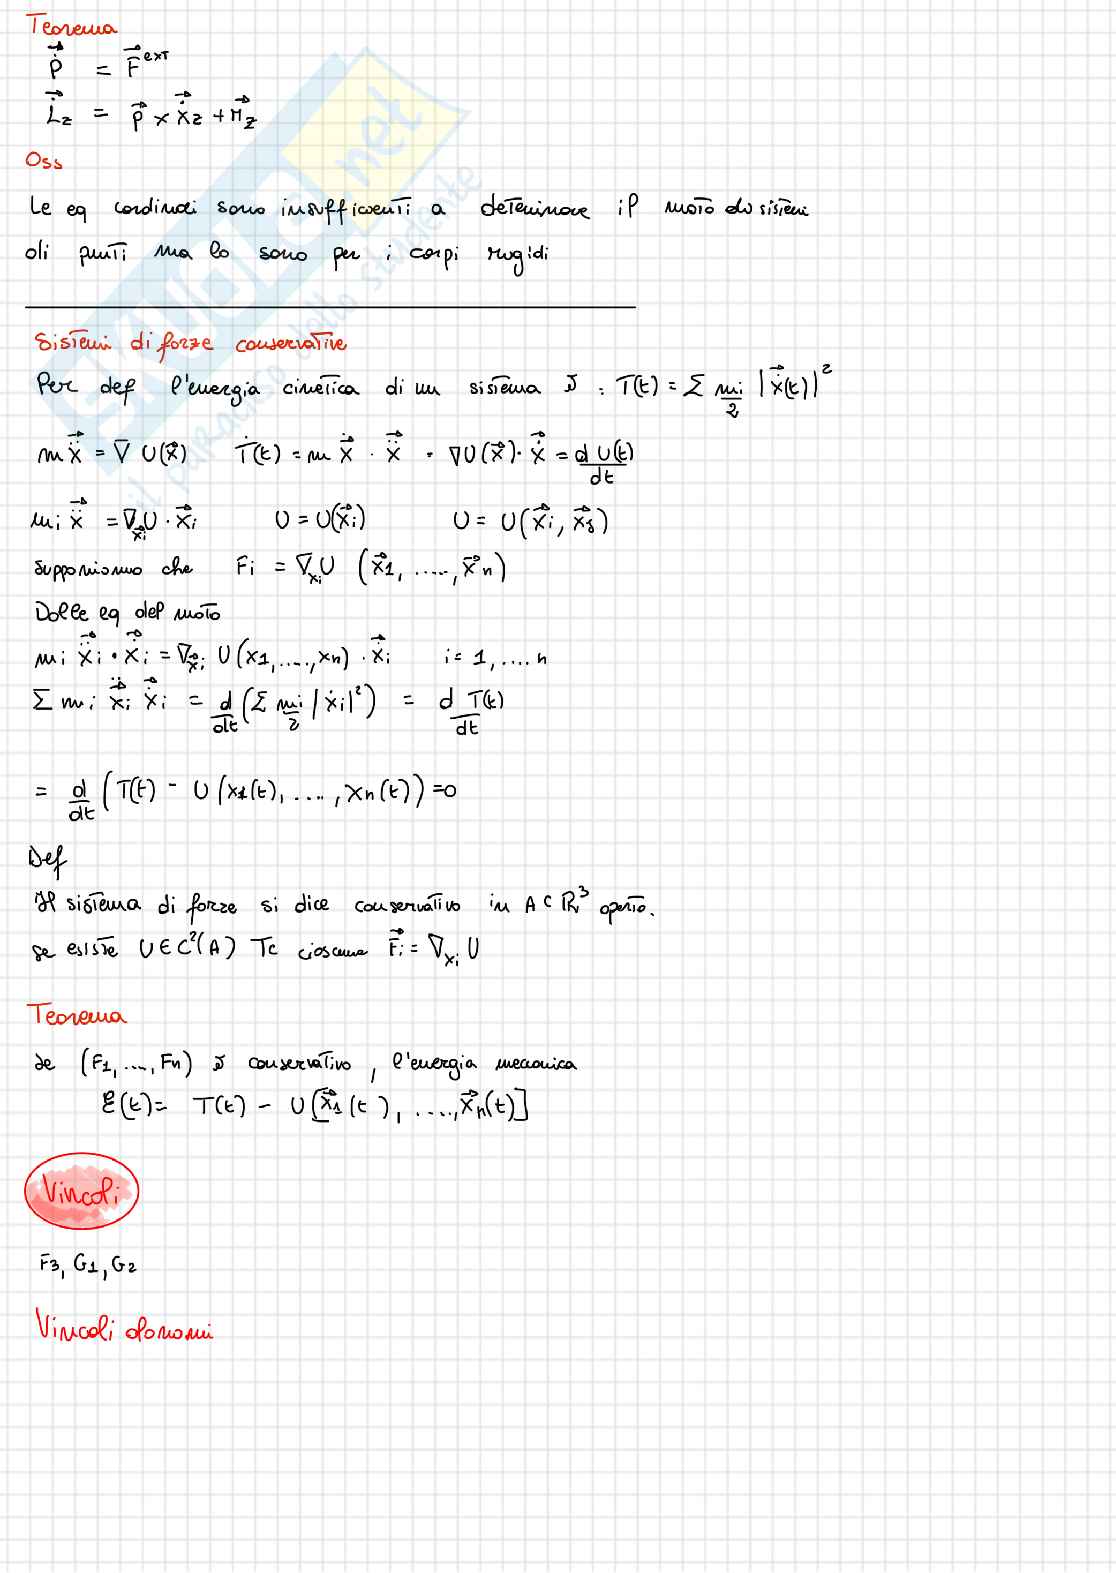 Teorema
$\dot{\vec{P}} = \vec{F}^{ext}$
$\dot{\vec{L}}_z = \vec{P} \times \dot{\vec{x}}_z + \vec{M}_z$
Oss
Le eq cardinali sono insufficienti a determinare il moto di sistemi
di punti ma lo sono per i corpi rigidi
Sistemi di forze conservative
Per def l'energia cinetica di un sistema è : $T(t) = \sum \frac{m_i}{2} |\dot{\vec{x}}(t)|^2$
$m\ddot{\vec{x}} = \nabla U(\vec{x})$ $\dot{T}(t) = m \dot{\vec{x}} \cdot \ddot{\vec{x}} = \nabla U(\vec{x}) \cdot \dot{\vec{x}} = \frac{d U(t)}{dt}$
$m_i \ddot{\vec{x}} = \nabla_{\vec{x}_i} U \cdot \dot{\vec{x}}_i$ $U = U(\vec{x}_i)$ $U = U(\vec{x}_i, \vec{x}_j)$
Supponiamo che $F_i = \nabla_{x_i} U (\vec{x}_1, ....., \vec{x}_n)$
Dalle eq del moto
$m_i \ddot{\vec{x}}_i \cdot \dot{\vec{x}}_i = \nabla_{\vec{x}_i} U(x_1, ....., x_n) \cdot \dot{\vec{x}}_i$ $i = 1, .... n$
$\sum m_i \ddot{\vec{x}}_i \dot{\vec{x}}_i = \frac{d}{dt} (\sum \frac{m_i}{2} |\dot{x}_i|^2) = \frac{d T(t)}{dt}$
$= \frac{d}{dt} (T(t) - U(x_1(t), ...., x_n(t)) = 0$
Def
Il sistema di forze si dice conservativo in $A \subset \mathbb{R}^3$ aperto.
se esiste $U \in C^2(A)$ Tc ciascuna $\vec{F}_i = \nabla_{x_i} U$
Teorema
Se $(F_1, ..., F_n)$ è conservativo, l'energia meccanica
$\mathcal{E}(t) = T(t) - U[\vec{x}_1(t), ....., \vec{x}_n(t)]$
Vincoli
F3, G1, G2
Vincoli olonomi
SKUOLA.net
il paradiso dello studente